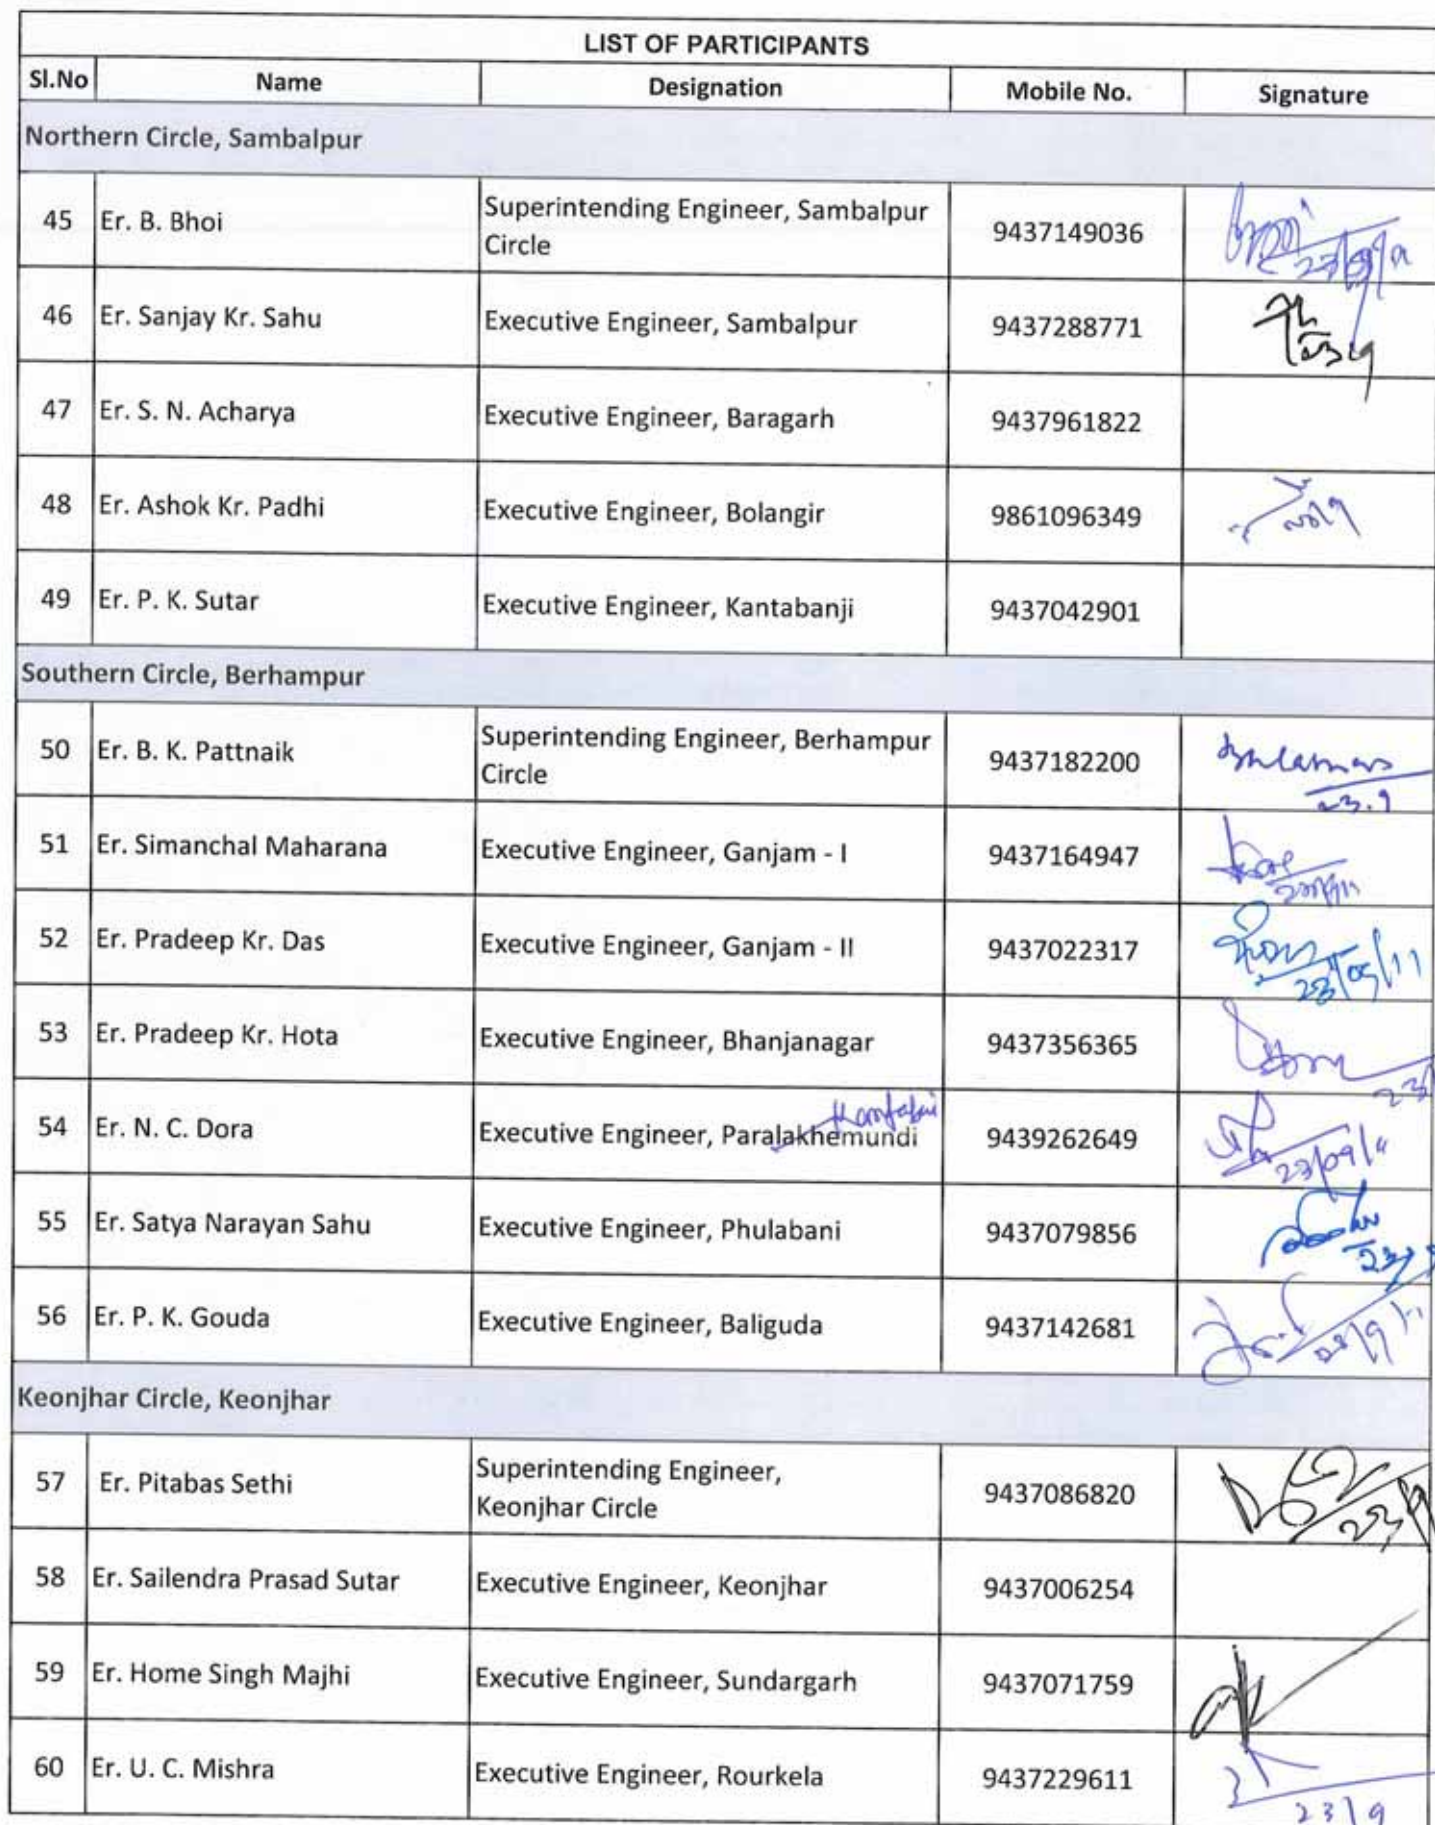 LIST OF PARTICIPANTS
Sl.No Name Designation Mobile No. Signature
Northern Circle, Sambalpur
45 Er. B. Bhoi Superintending Engineer, Sambalpur Circle 9437149036
46 Er. Sanjay Kr. Sahu Executive Engineer, Sambalpur 9437288771
47 Er. S. N. Acharya Executive Engineer, Baragarh 9437961822
48 Er. Ashok Kr. Padhi Executive Engineer, Bolangir 9861096349
49 Er. P. K. Sutar Executive Engineer, Kantabanji 9437042901
Southern Circle, Berhampur
50 Er. B. K. Pattnaik Superintending Engineer, Berhampur Circle 9437182200 23.9
51 Er. Simanchal Maharana Executive Engineer, Ganjam - I 9437164947
52 Er. Pradeep Kr. Das Executive Engineer, Ganjam - II 9437022317 23/09/11
53 Er. Pradeep Kr. Hota Executive Engineer, Bhanjanagar 9437356365 23/
54 Er. N. C. Dora Executive Engineer, Paralakhemundi 9439262649 23/09/11
55 Er. Satya Narayan Sahu Executive Engineer, Phulabani 9437079856 23/9
56 Er. P. K. Gouda Executive Engineer, Baliguda 9437142681 23/9/11
Keonjhar Circle, Keonjhar
57 Er. Pitabas Sethi Superintending Engineer, Keonjhar Circle 9437086820 23/9
58 Er. Sailendra Prasad Sutar Executive Engineer, Keonjhar 9437006254
59 Er. Home Singh Majhi Executive Engineer, Sundargarh 9437071759
60 Er. U. C. Mishra Executive Engineer, Rourkela 9437229611 23/9